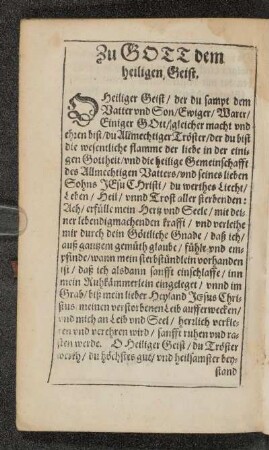 Zu GOTT dem
heiligen Geist.
O Heiliger Geist / der du sampt dem
Vatter vnd Son / Ewiger / Warer /
Einiger GOtt / gleicher macht vnd
ehren bist / du Allmechtiger Tröster / der du bist
die wesentliche flamme der liebe in der eini-
gen Gottheit / vnd die heilige Gemeinschafft
des Allmechtigen Vatters / vnd seines lieben
Sohns JEsu Christi / du werthes Liecht /
Leben / Heil / vnnd Trost aller sterbenden:
Ach / erfülle mein Hertz vnd Seele / mit dei-
ner lebendigmachenden krafft / vnd verleihe
mir durch dein Göttliche Gnade / daß ich /
auß gantzem gemüth glaube / fühle vnd em-
pfinde / wann mein sterbstündlein vorhanden
ist / daß ich alsdann sanfft einschlaffe / inn
mein Ruhkämmerlein eingeleget / vnnd im
Grab / biß mein lieber Heyland Jesus Chri-
stus / meinen verstorbenen Leib aufferwecken /
vnd mich an Leib vnd Seel / herrlich verkle-
ren vnd verehren wird / sanfft ruhen vnd ra-
sten werde. O Heiliger Geist / du Tröster
werth / du höchstes gut / vnd heilsamster bey-
stand